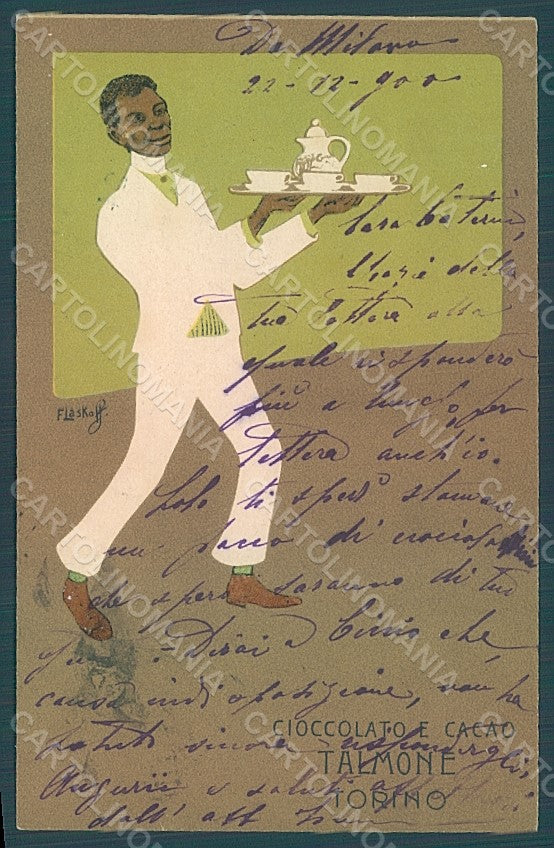 Da Milano
22-12-900
Cara Caterina,
Grazie della
tua lettera alla
quale risponderò
più a lungo, per
lettera anch'io.
Solo ti spedì stamane
un pacco di
che spero saranno di tuo
Dirai a che,
causa indisposizione, non ha
potuto sinora rispondergli.
Auguri e saluti
dall' aff
FLaskoff
CIOCCOLATO E CACAO
TALMONE
TORINO
CARTOLINOMANIA